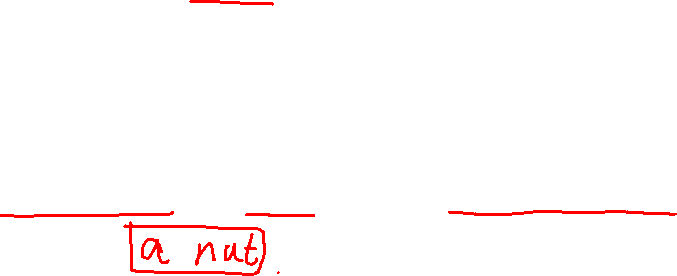 a nut.